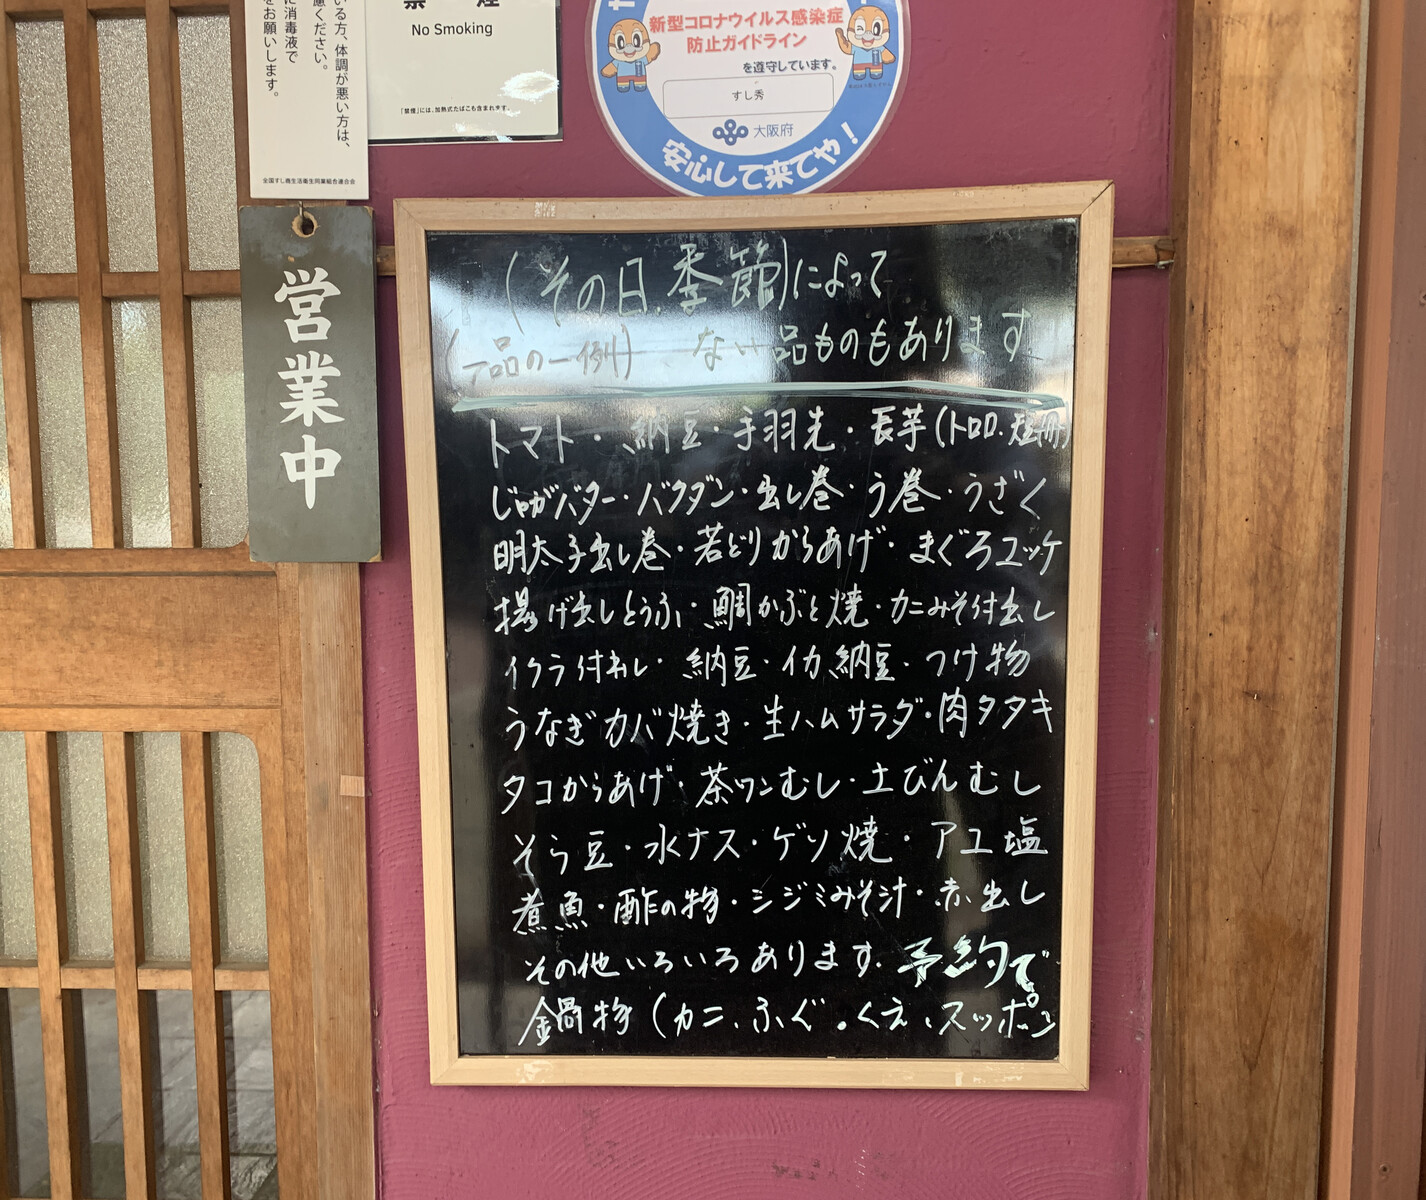 いる方、体調が悪い方は、
慮ください。
に消毒液で
をお願いします。
全国すし商生活衛生同業組合連合会
禁煙
No Smoking
「禁煙」には、加熱式たばこも含まれます。
新型コロナウイルス感染症
防止ガイドライン
を遵守しています。
すし秀
大阪府
安心して来てや!
営業中
(その日.季節)によって
(一品の一例) ない品ものもあります
トマト・納豆・手羽先・長芋(トロロ.短冊)
じゃがバター・バクダン・出し巻・う巻・うざく
明太子出し巻・若どりからあげ・まぐろユッケ
揚げ出しとうふ・鯛かぶと焼・カニみそ付出し
イクラ付おろし・納豆・イカ納豆・つけ物
うなぎカバ焼き・生ハムサラダ・肉タタキ
タコからあげ・茶ワンむし・土びんむし
そら豆・水ナス・ゲソ焼・アユ塩
煮魚・酢の物・シジミみそ汁・赤出し
その他いろいろあります.予約で
鍋物(カニ、ふぐ。くえ、スッポン